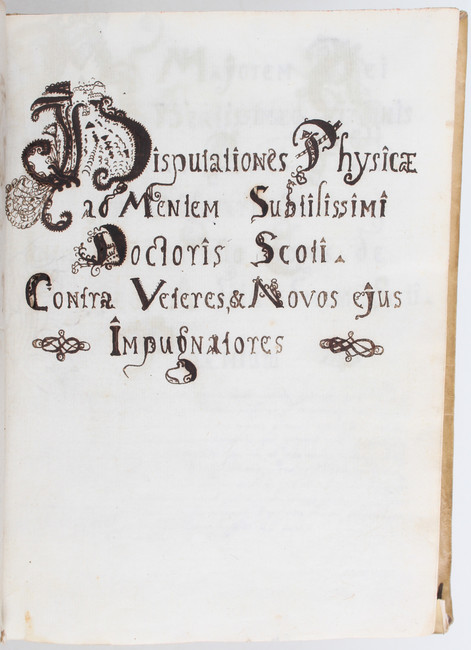 Disputationes Physicæ
ad Mentem Subtilissimi
Doctoris Scoti.
Contra Veteres, & Novos ejus
Impugnatores